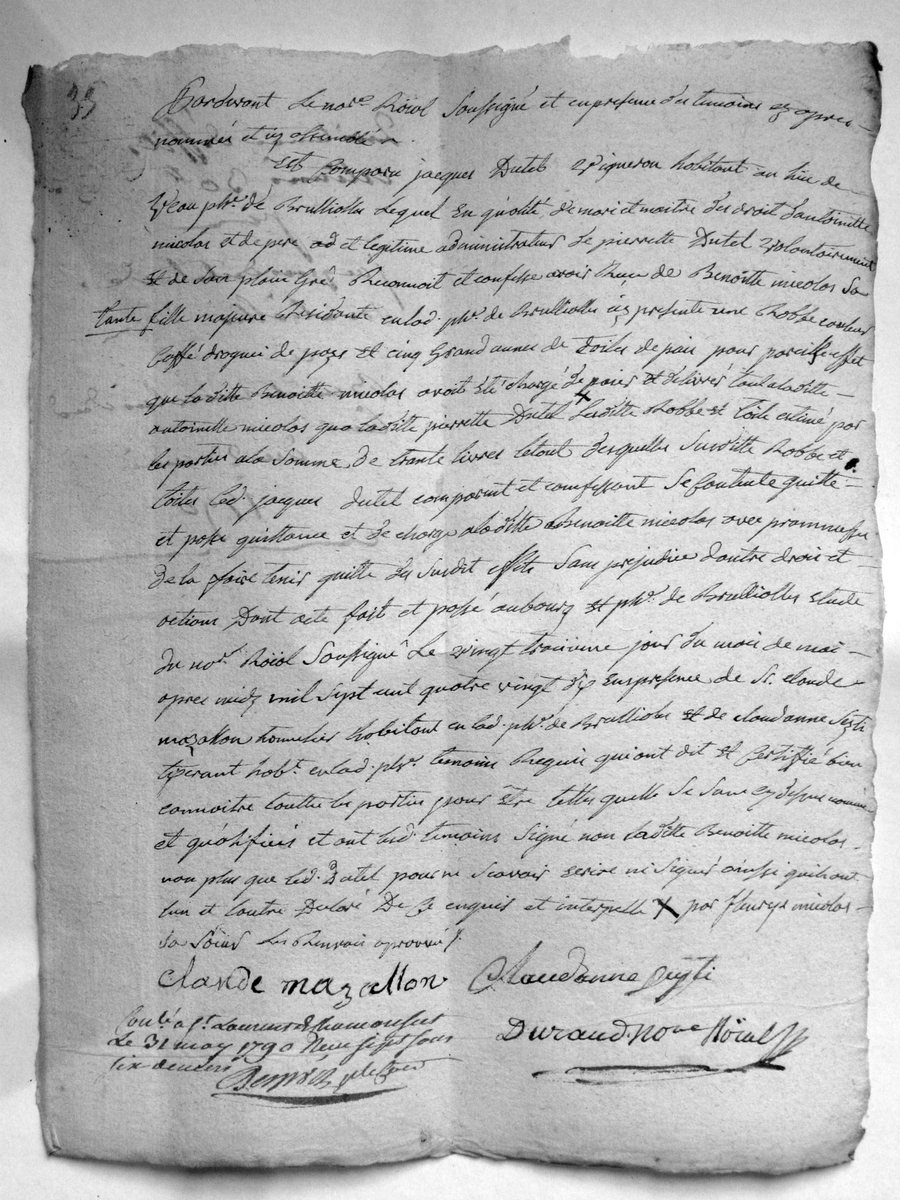 33
Pardevant le nore Röial Soussigné et en presense des temoins cy apres
nommés et cy assemblé
Est Comparu jacques Dutel Vigneron habitant au lieu de
phe. de Brulliolles lequel En qualité de mari et maitre des droit dantoinette
nicolas et de pere ad et legitime administrateur de pierrette Dutel volontairement
et de Son plain Gré Reconnoit et confesse avoir Reçu de Benoitte nicolas Sa
tante fille majeure Residante en lad. phe. de Brulliolles icy presente une Robbe couleur
Caffé droguet de et cinq Grand aunes de Toiles de pour pareille effet
que laditte Benoitte nicolas avoit été chargé de paier et délivrer tant a laditte
antoinette nicolas qua laditte pierrette Dutel X laditte Robbe et toile estimé par
les parties a la Somme de trante livres le tout desquelles Susditte Robbe et
toiles led. jacques dutel comparent et confessant Se contente quitte
et passe quittance et de charge a laditte Benoitte nicolas avec prommesse
de la faire tenir quitte des Susdit effets Sans prejudice dautre droit et
actions Dont acte fait et passé au bourg et phe. de Brulliolles Etude
du nore. Röial Soussigné le vingt troisieme jour du mois de mai
apres midy mil Sept cent quatre vingt dix En presense de Sr. claude
mazallon tonnelier habitant en lad. phe. de Brulliolles et de claudanne
tixerant habt. en lad. phe. temoins Requis qui ont dit et Certiffié bien
connoitre toutte les parties pour Etre telles quelle Se Sont cy dessus nommé
et qualifiés et ont lesd. temoins Signé non laditte Benoitte nicolas
non plus que led. Dutel pour ne Scavoir ecrire ni Signer ainssi quils ont
lun et lautre Declaré De Ce enquis et interpellé X par fleurye nicolas
Sa Soeur les Renvois aprouvé
Claude mazallon Claudanne
Conlé a St. Laurent de Chamousset
Le 31 may 1790 Reçu sept sous
six deniers
Durand Nore Röial